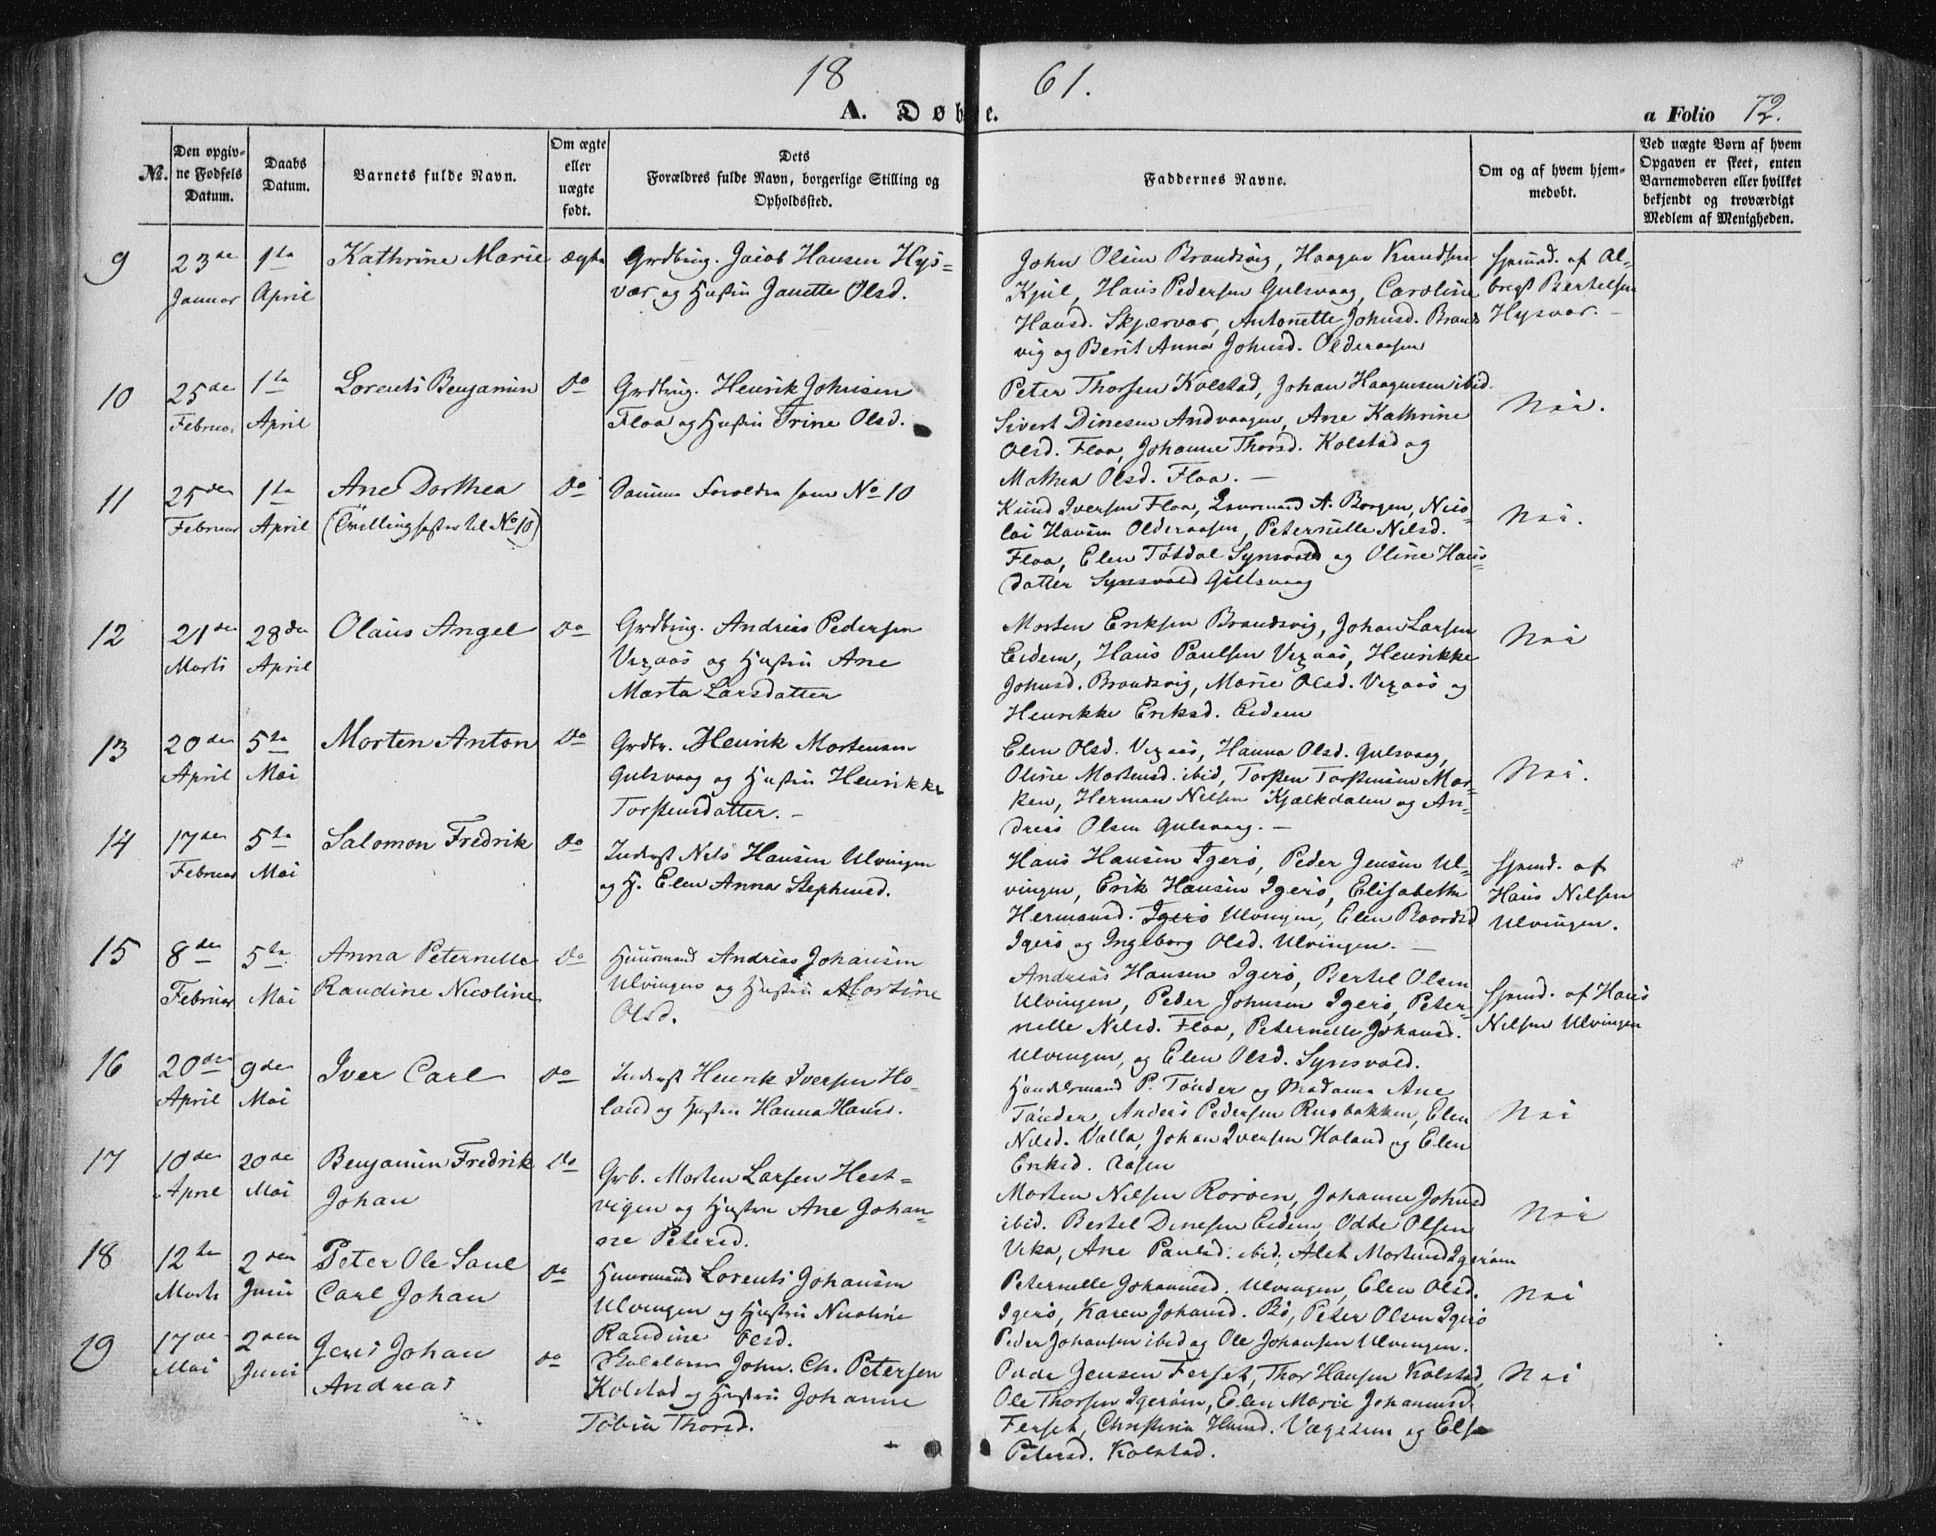 18 61.
A. Døbte. a Folio 72.
No. Den opgivne Fødsels Datum. Daabs Datum. Barnets fulde Navn. Om ægte eller uægte født. Dets Forældres fulde Navn, borgerlige Stilling og Opholdssted. Faddernes Navne. Om og af hvem hjemmedøbt. Ved uægte Børn af hvem Opgaven er skeet, enten Barnemoderen eller hvilket bekjendt og troværdigt Medlem af Menigheden.
9 23de Januar 1ste April Kathrine Marie ægte
Grdbrug. Jacob Hansen Hys-
vær og Hustru Janette Olsd.
John Olsen Brandsvig, Haagen Knudsen
Kjul, Hans Pedersen Gulsvaag, Caroline
Hansd. Skjærvær, Antonette Johnsd. Brands
vig og Berit Anna Johnsd. Olderaasen
Hjemd. af Al-
bregt Bertelsen
Hysvær.
10 25de Februar 1ste April Lorents Benjamin do
Grdbrug. Henrik Johnsen
Floa og Hustru Trine Olsd.
Peter Thorsen Kolstad, Johan Haagensen ibid.
Sivert Dinesen Andvaagen, Ane Kathrine
Olsd. Floa, Johanne Thorsd. Kolstad og
Mathea Olsd. Floa. —
Nei.
11 25de Februar 1ste April Ane Dorthea
(Tvillingsøster til No 10) do
Samme Forældre som No 10
Knud Iversen Floa, A. Borgen, Nico-
lai Hansen Olderaasen, Peternille Nilsd.
Floa, Elen Tøtdal Synsvold og Oline Hans
datter Synsvold Gullsvaag
Nei.
12 21de Marts 28de April Olaus Angel do
Grdbrug. Andreas Pedersen
Vezaas og Hustru Ane
Marta Larsdatter
Morten Eriksen Brandsvig, Johan Larsen
Eidem, Hans Paulsen Vezaas, Henrikke
Johnsd. Brandsvig, Marie Olsd. Vezaas og
Henrikke Eriksd. Eidem
Nei
13 20de April 5te Mai Morten Anton do
Grdbr. Henrik Mortensen
Gulsvaag og Hustru Henrikke
Torstensdatter. —
Elen Olsd. Vezaas, Hanna Olsd. Gulsvaag,
Oline Mortensd. ibid, Torsten Torstensen Mar-
ken, Herman Nilsen Kjælkdalen og An-
dreas Olsen Gulsvaag. —
Nei.
14 17de Februar 5te Mai Salomon Fredrik do
Inderst Nils Hansen Ulvingen
og H. Elen Anna Stephensd.
Hans Hansen Igerø, Peder Jensen Ul-
vingen, Erik Hansen Igerø, Elisabeth
Hermansd. Igerø Ulvingen, Elen Baardsd
Igerø og Ingeborg Olsd. Ulvingen. —
Hjemd. af
Hans Nilsen
Ulvingen.
15 8de Februar 5te Mai Anna Peternelle
Raudine Nicoline do
Huusmand Andreas Johansen
Ulvingen og Hustru Martine
Olsd.
Andreas Hansen Igerø, Bertel Olsen
Ulvingen, Peder Johnsen Igerø, Peter-
nelle Nilsd. Floa, Peternelle Johansd.
Ulvingen, og Elen Olsd. Synsvold.
Hjemd. af Hans
Nilsen Ulvingen
16 20de April 9de Mai Iver Carl do
Inderst Henrik Iversen Ho-
land og Hustru Hanna Hansd.
Handelsmand P. Tønder og Madame Ane
Tønder, Anders Pedersen Rusbakken, Elen
Nilsd. Valla, Johan Iversen Holand og Elen
Eriksd. Aasen
Nei
17 10de April 20de Mai Benjamin Fredrik
Johan do
Grb. Morten Larsen Hest-
vigen og Hustru Ane Johan-
ne Petersd.
Morten Nilsen Rorøen, Johanne Johnsd
ibid. Bertel Dinesen Eidem, Odte Olsen
Vika, Ane Paulsd. ibid, Alet Mortensd Igerøen
Nei
18 12te Marts 2den Juni Peter Ole Saul
Carl Johan do
Huusmand Lorents Johansen
Ulvingen og Hustru Nicoline
Raudine Olsd.
Peternelle Johannesd. Ulvingen, Elen Olsd.
Igerø, Karen Johansd. Bø, Peter Olsen Igerø
Peder Johansen ibid og Ole Johansen Ulvingen.
Nei
19 17de Mai 2den Juni Jens Johan
Andreas do
John. Ch. Petersen
Kolstad og Hustru Johanne
Tobia Thorsd.
Jensen Ferset, Thor Hansen Kolstad,
Ole Thorsen Igerøen, Elen Marie Johannesd.
Ferset, Christina Hansd. og Else
Petersd. Kolstad.
Nei